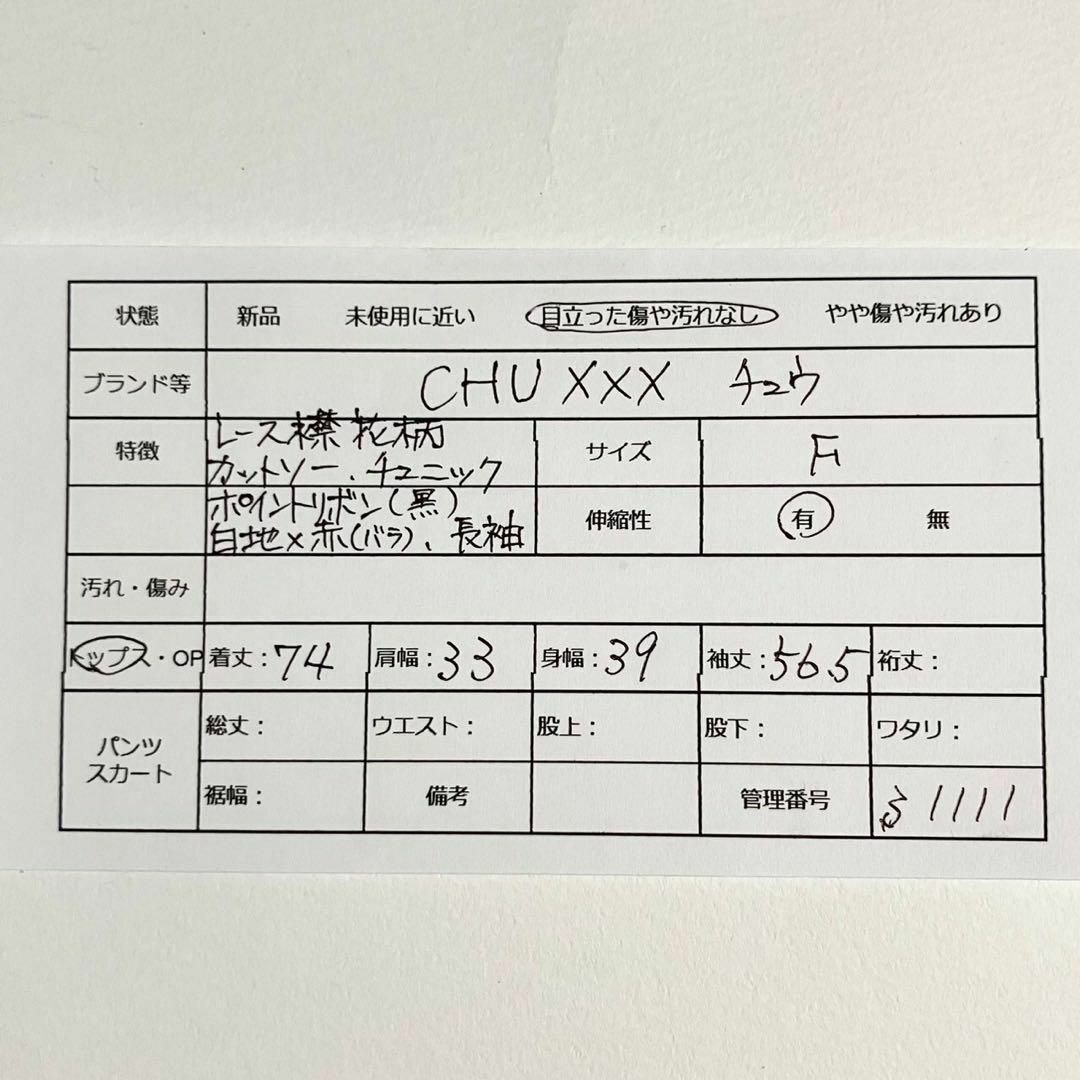 状態 新品 未使用に近い 目立った傷や汚れなし やや傷や汚れあり
ブランド等 CHU XXX チュウ
特徴 レース襟 花柄
カットソー、チュニック サイズ F
ポイントリボン(黒)
白地×赤(バラ)、長袖 伸縮性 有 無
汚れ・傷み
トップス・OP 着丈:74 肩幅:33 身幅:39 袖丈:56.5 裄丈:
パンツ
スカート
総丈: ウエスト: 股上: 股下: ワタリ:
裾幅: 備考 管理番号 1111